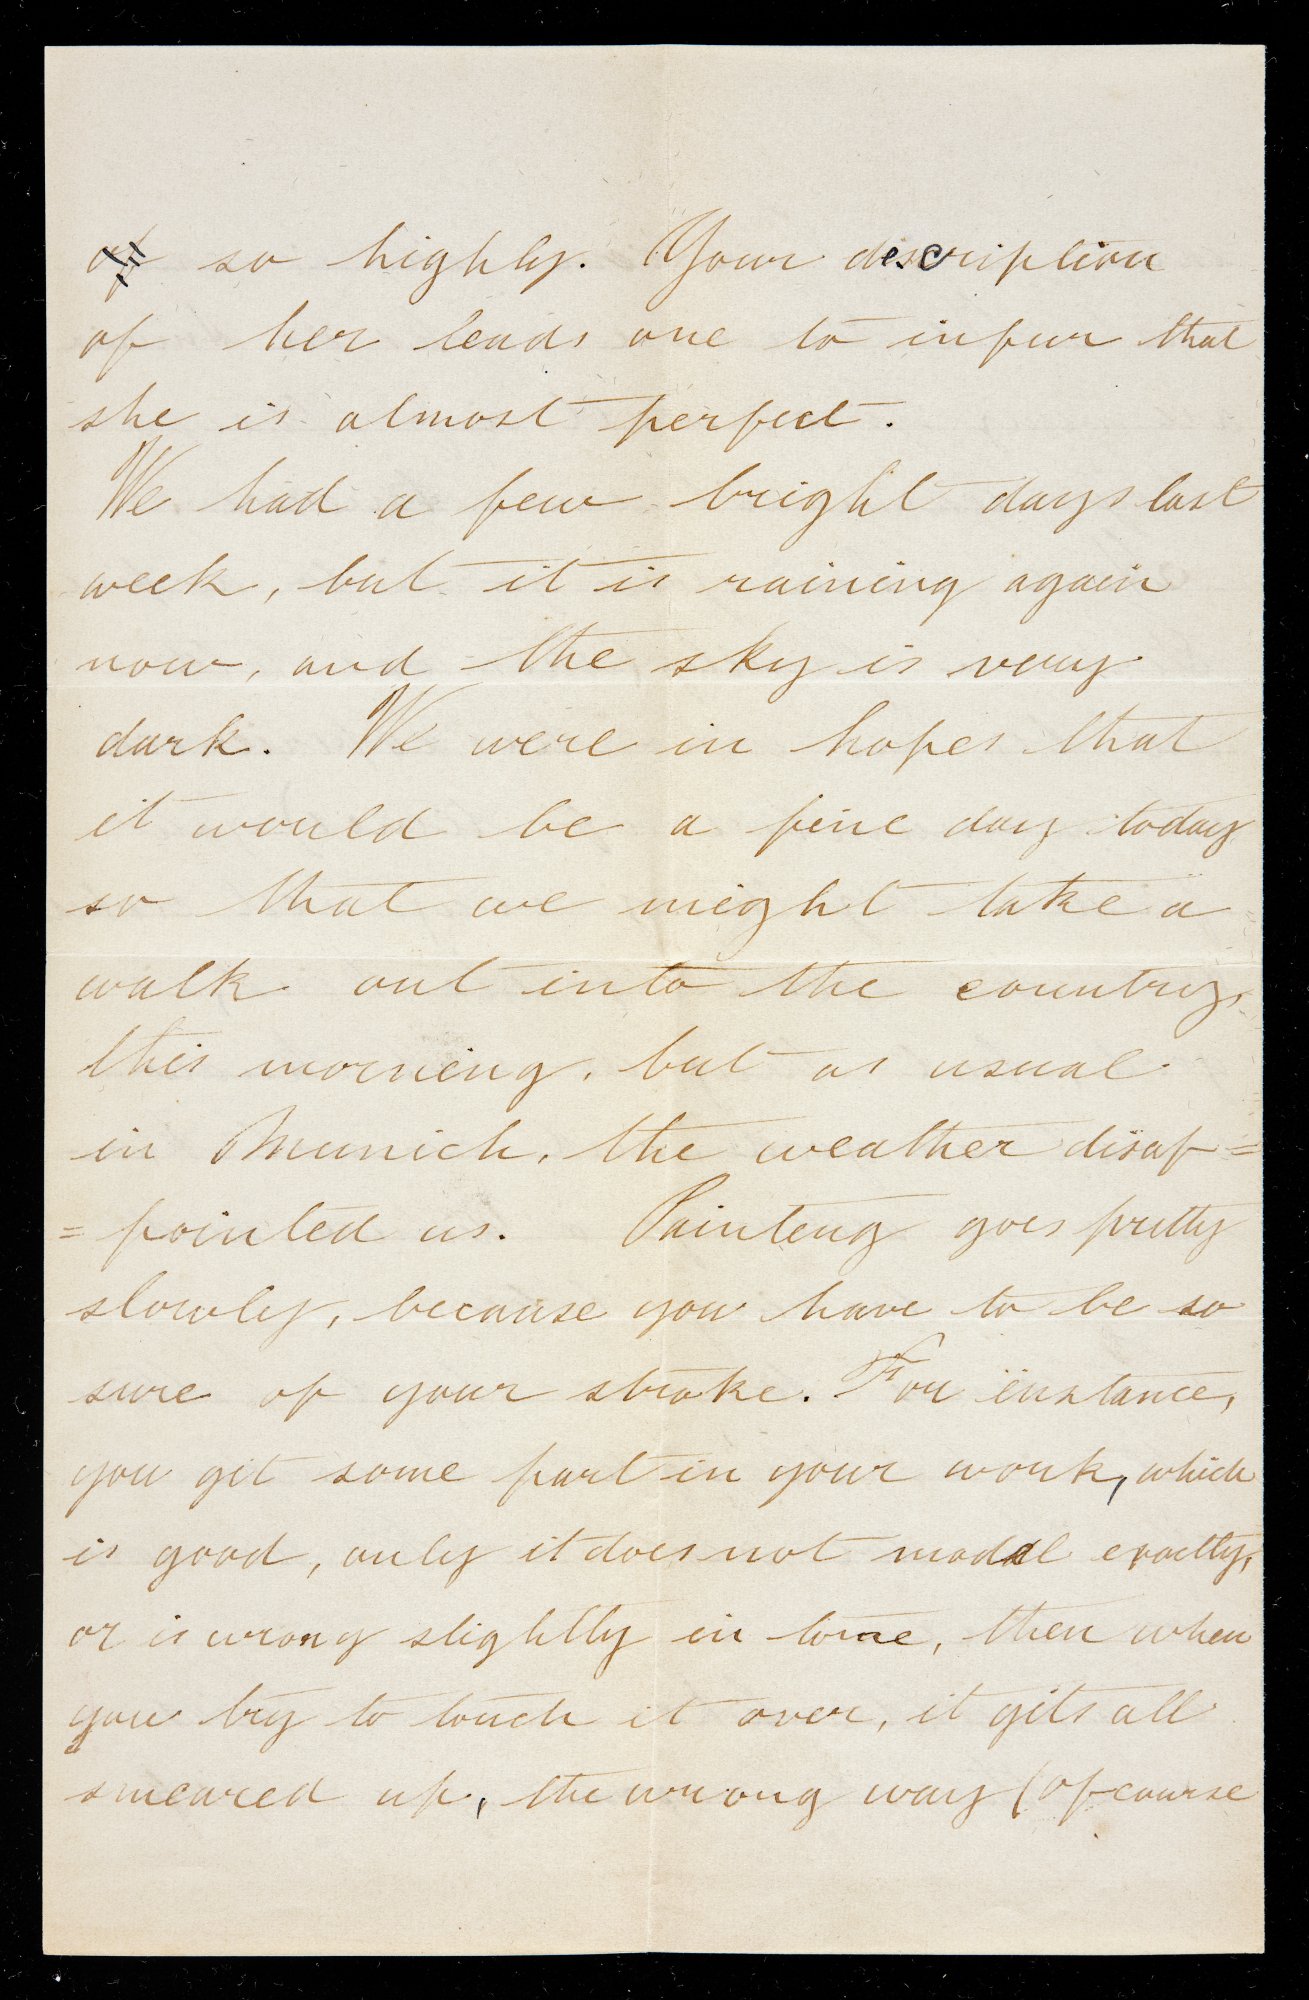 of so highly. Your description
of her leads one to infur that
she is almost perfect.
We had a few bright days last
week, but it is raining again
now, and the sky is very
dark. We were in hopes that
it would be a fine day today
so that we might take a
walk out into the country,
this morning, but as usual
in Munich, the weather disap=
=pointed us. Painting goes pretty
slowly, because you have to be so
sure of your stroke. For instance,
you git some part in your work, which
is good, only it does not model exactly,
or is wrong slightly in tone, then when
you try to touch it over, it gits all
smeared up, the wrong way (of course